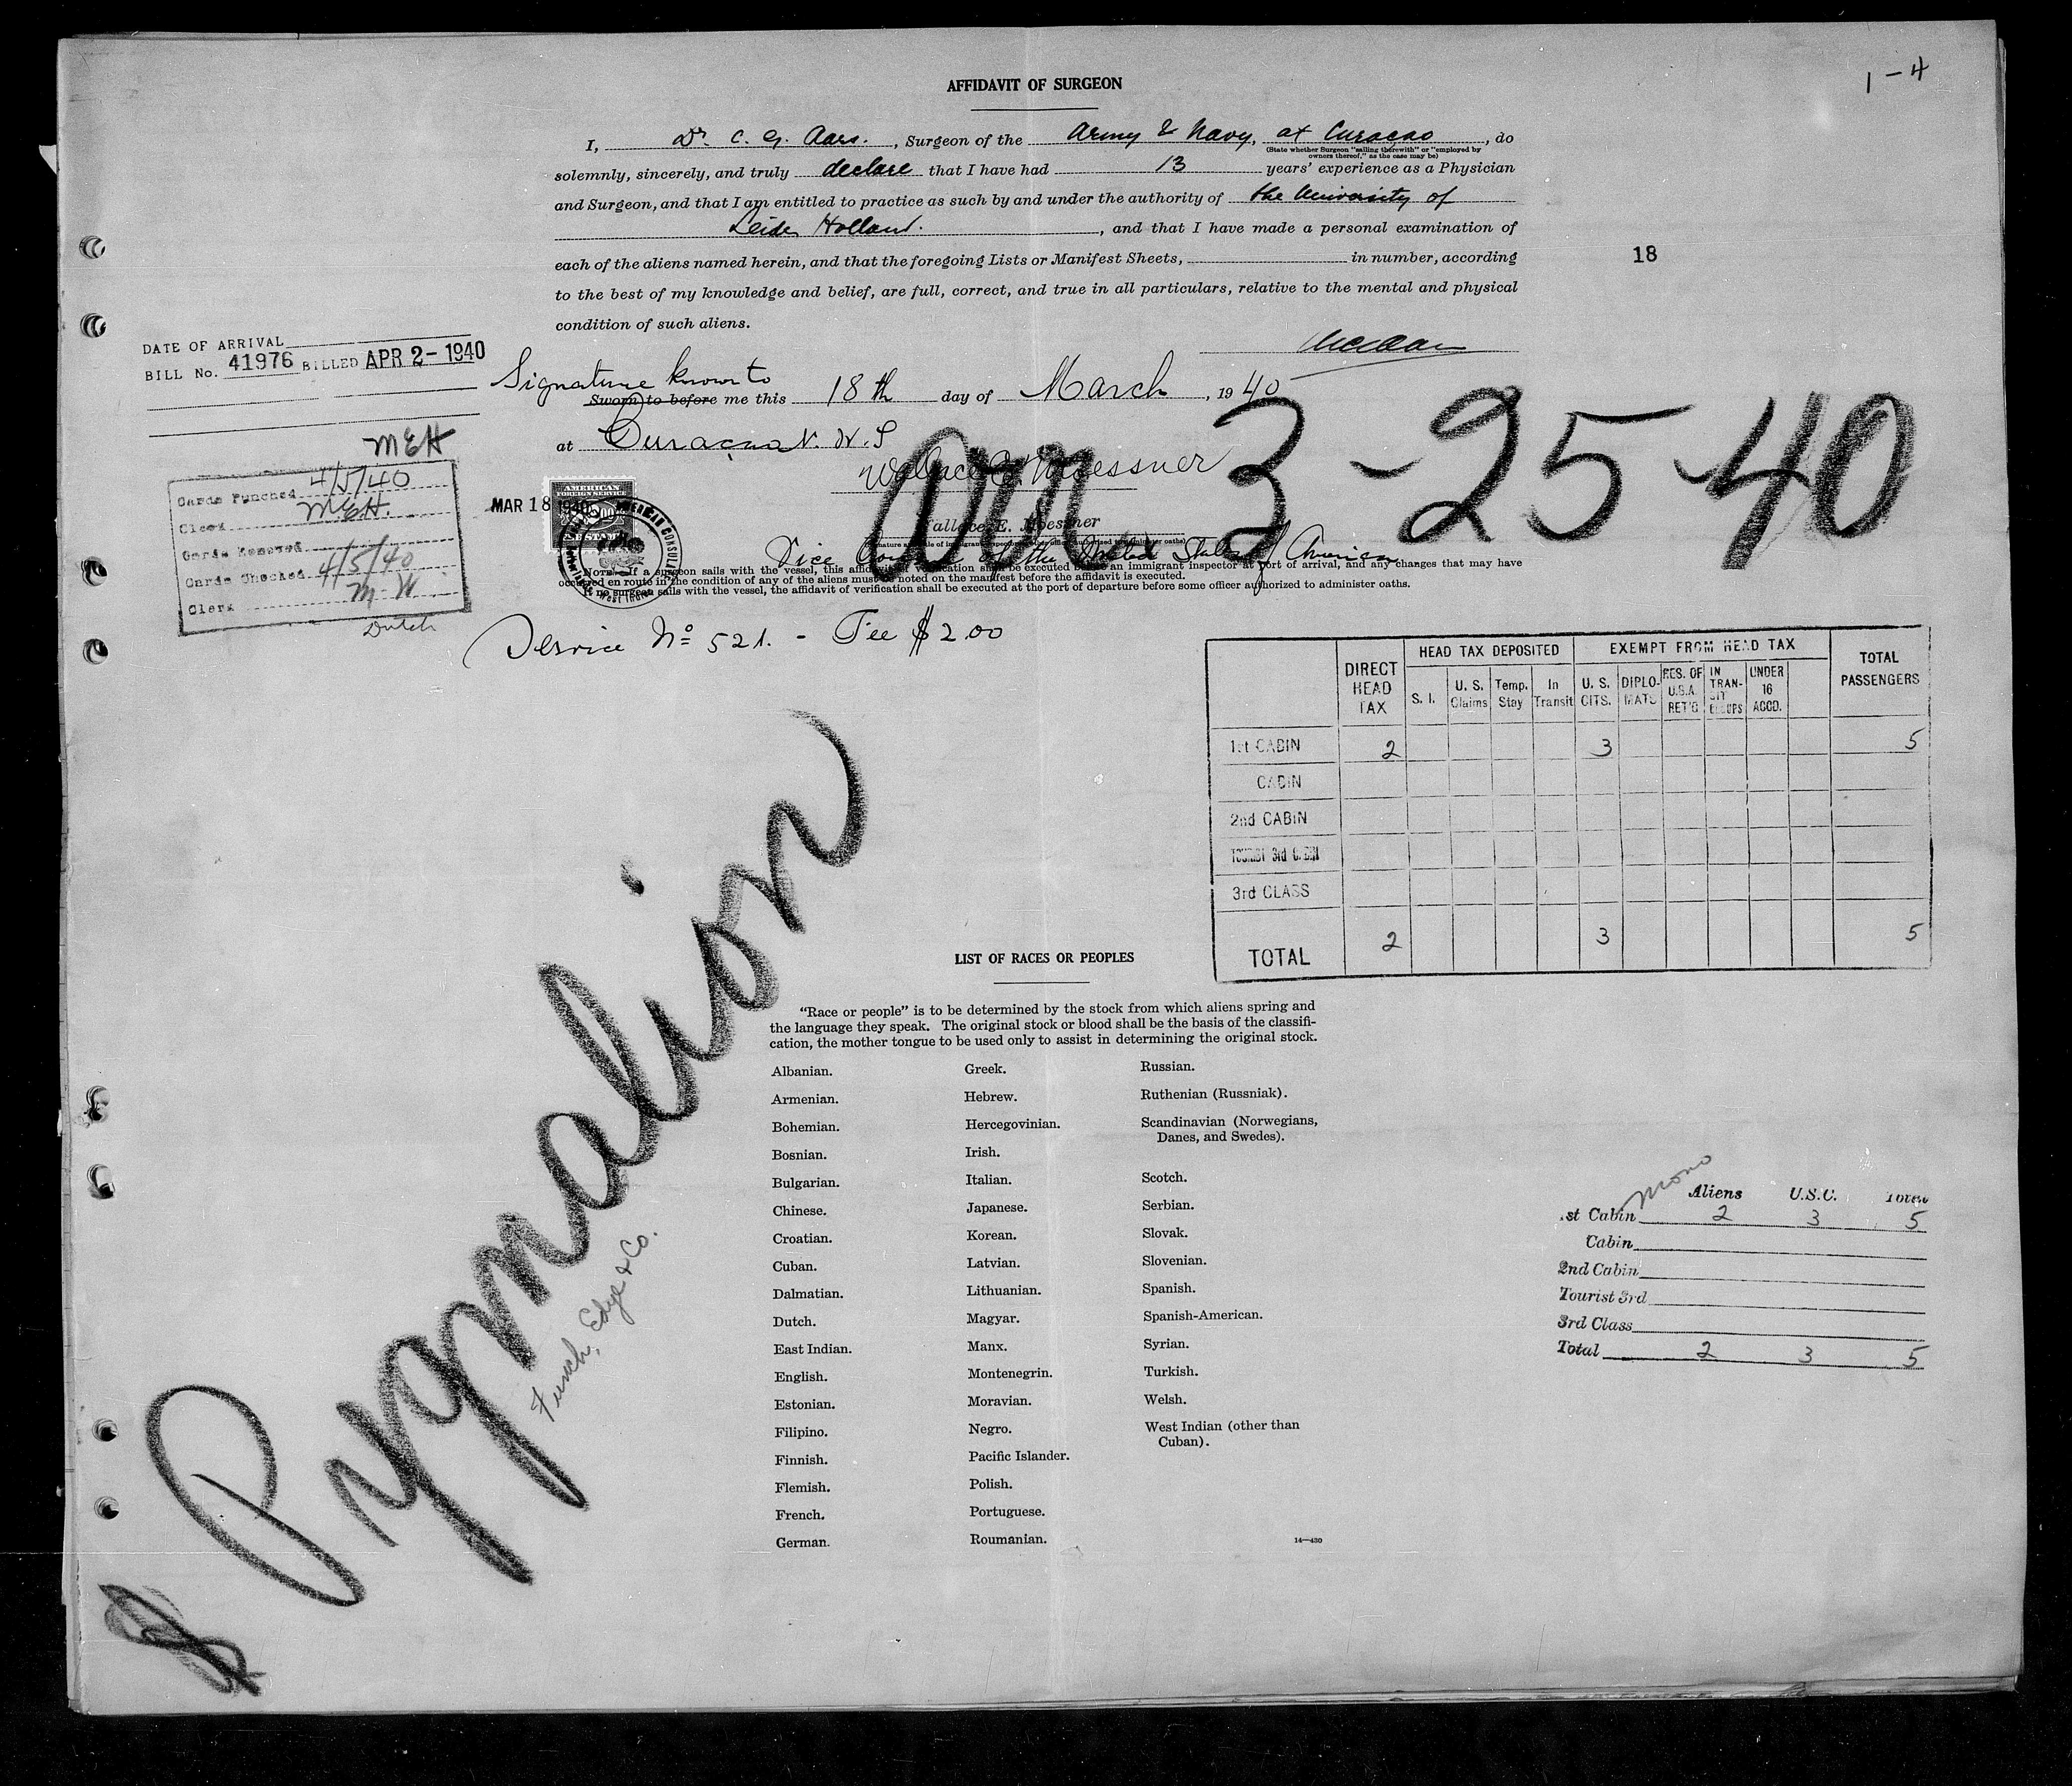 1-4
AFFIDAVIT OF SURGEON
I, Dr. C. G. Aars. , Surgeon of the Army & Navy, at Curaçao , do
(State whether Surgeon "sailing therewith" or "employed by
owners thereof," as the case may be)
solemnly, sincerely, and truly declare that I have had 13 years' experience as a Physician
and Surgeon, and that I am entitled to practice as such by and under the authority of the University of
Leiden Holland. , and that I have made a personal examination of
each of the aliens named herein, and that the foregoing Lists or Manifest Sheets, in number, according
18
to the best of my knowledge and belief, are full, correct, and true in all particulars, relative to the mental and physical
condition of such aliens.
DATE OF ARRIVAL
BILL No. 41976 BILLED APR 2-1940
Signature known to
Sworn to before me this 18th day of March , 1940
at Curaçao N. W. I
MEH
Cards Punched 4/5/40
Clerk M.E.H.
Cards Removed
Cards Checked 4/5/40
Clerk M. W.
Dutch
am 3-25-40
Wallace E. Moessner
MAR 18 1940
AMERICAN
FOREIGN SERVICE
FEE STAMP
AMERICAN CONSULATE
West Indies
Wallace E. Moessner
Vice Consul of the United States of America
NOTE.—If a surgeon sails with the vessel, this affidavit of verification shall be executed before an immigrant inspector at port of arrival, and any changes that may have
occurred en route in the condition of any of the aliens must be noted on the manifest before the affidavit is executed.
If no surgeon sails with the vessel, the affidavit of verification shall be executed at the port of departure before some officer authorized to administer oaths.
Service No 521. - Fee $2.00
DIRECT HEAD TAX HEAD TAX DEPOSITED EXEMPT FROM HEAD TAX TOTAL PASSENGERS
S. I. U. S. Claims Temp. Stay In Transit U. S. CITS. DIPLOMATS RES. OF U.S.A. RET'G IN TRANSIT GROUPS UNDER 16 ACCD.
1st CABIN 2 3 5
CABIN
2nd CABIN
TOURIST 3rd CABIN
3rd CLASS
TOTAL 2 3 5
Pygmalion
Funch, Edye & Co.
LIST OF RACES OR PEOPLES
"Race or people" is to be determined by the stock from which aliens spring and
the language they speak. The original stock or blood shall be the basis of the classifi-
cation, the mother tongue to be used only to assist in determining the original stock.
Albanian.
Armenian.
Bohemian.
Bosnian.
Bulgarian.
Chinese.
Croatian.
Cuban.
Dalmatian.
Dutch.
East Indian.
English.
Estonian.
Filipino.
Finnish.
Flemish.
French.
German.
Greek.
Hebrew.
Hercegovinian.
Irish.
Italian.
Japanese.
Korean.
Latvian.
Lithuanian.
Magyar.
Manx.
Montenegrin.
Moravian.
Negro.
Pacific Islander.
Polish.
Portuguese.
Roumanian.
Russian.
Ruthenian (Russniak).
Scandinavian (Norwegians,
Danes, and Swedes).
Scotch.
Serbian.
Slovak.
Slovenian.
Spanish.
Spanish-American.
Syrian.
Turkish.
Welsh.
West Indian (other than
Cuban).
14—430
Mono
Aliens U.S.C. Total
1st Cabin 2 3 5
Cabin
2nd Cabin
Tourist 3rd
3rd Class
Total 2 3 5